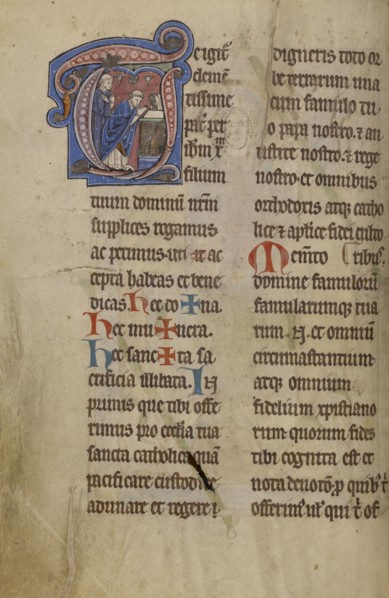 Te igit̃
clemẽ
tissime
pat̃ per
ihm xp̃m
filium
tuum dominũ nrm̃
supplices rogamus
ac petimus uti ac
cepta habeas et bene
dicas. hec do✠na.
hec mu✠nera.
hec sanc✠ta sa
crificia illibata. In
primis que tibi offe
rimus pro ecctia tua
sancta catholica quã
pacificare custodire
adunare et regere
digneris toto or
be terrarum una
cum famulo tu
o papa nostro. et an
tistite nostro. et rege
nostro. et omnibus
orthodoxis atq; catho
lice et aplice fidei culto
Memẽto ribus.
domine famuloꝝ
famularumq; tua
rum. N. et omniũ
circumastantium
atq; omnium
fidelium xpistiano
rum quorum fides
tibi cognita est et
nota deuotõ. p quib; t̃
offerim; uł qui t̃ of